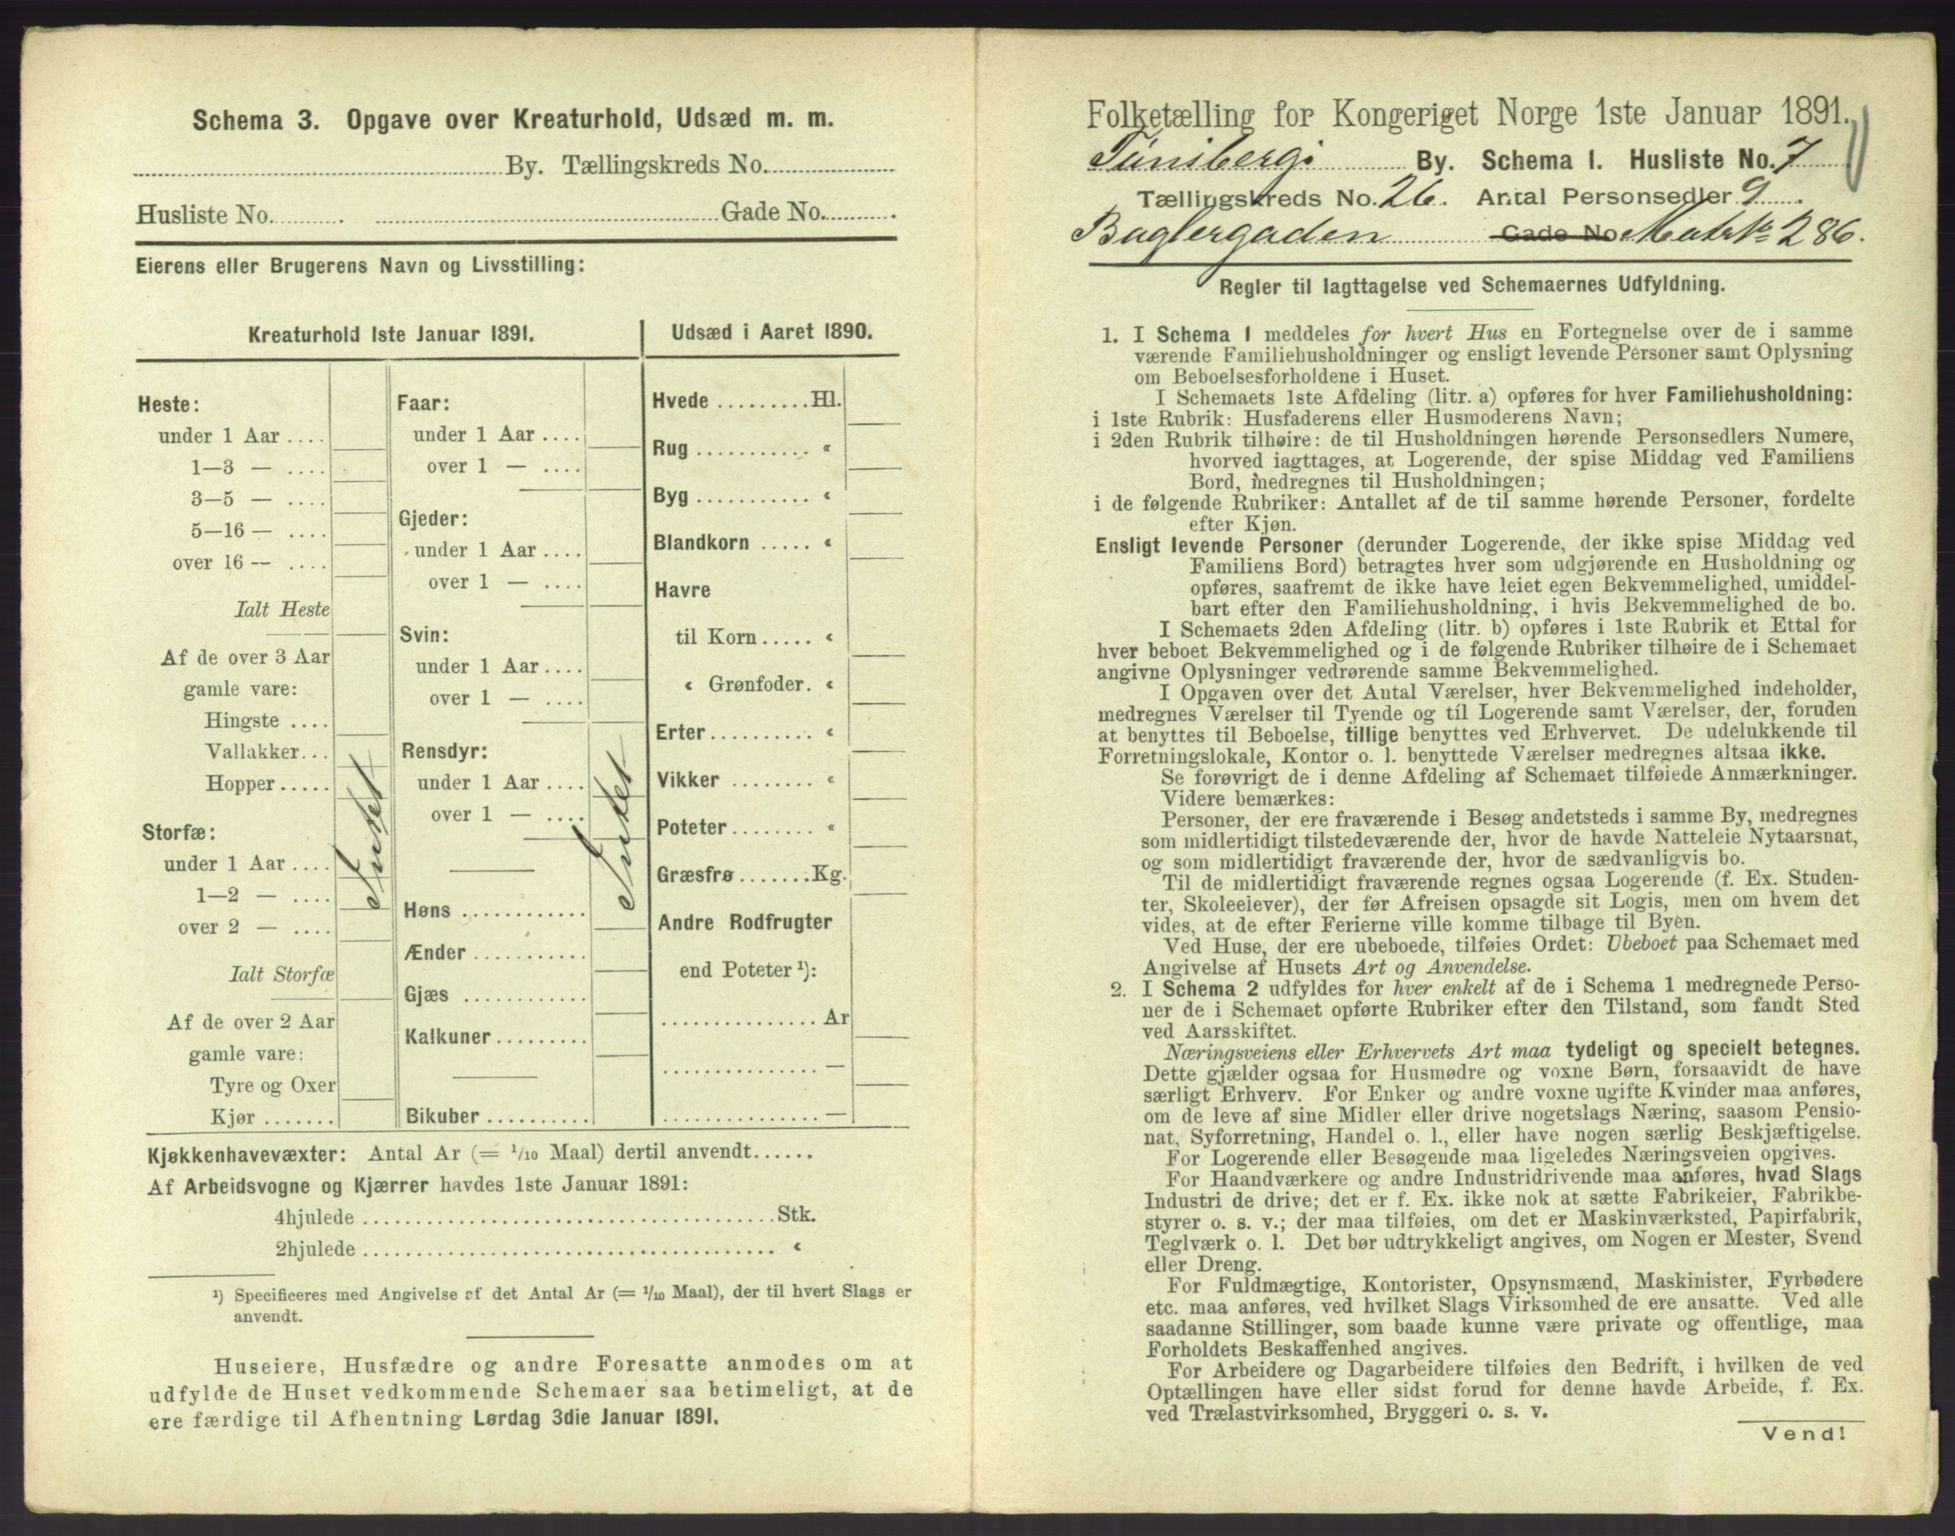 Schema 3. Opgave over Kreaturhold, Udsæd m. m.
By. Tællingskreds No.
Husliste No. Gade No.
Eierens eller Brugerens Navn og Livsstilling:
Kreaturhold 1ste Januar 1891.
Heste:
under 1 Aar ....
1—3 — ....
3—5 — ....
5—16 — ....
over 16 — ....
Ialt Heste
Af de over 3 Aar
gamle vare:
Hingste ....
Vallakker...
Hopper.....
Storfæ:
under 1 Aar ....
1—2 — ....
over 2 — ....
Ialt Storfæ
Af de over 2 Aar
gamle vare:
Tyre og Oxer
Kjør .......
Intet
Faar:
under 1 Aar ....
over 1 — ....
Gjeder:
under 1 Aar ....
over 1 — ....
Svin:
under 1 Aar ....
over 1 — ....
Rensdyr:
under 1 Aar ....
over 1 — ....
Høns ............
Ænder ...........
Gjæs ............
Kalkuner.........
Bikuber ..........
Intet
Udsæd i Aaret 1890.
Hvede .........Hl.
Rug ........... «
Byg ........... «
Blandkorn ..... «
Havre
til Korn..... «
« Grønfoder. «
Erter.......... «
Vikker ........ «
Poteter........ «
Græsfrø.......Kg.
Andre Rodfrugter
end Poteter ¹):
............... Ar
............... —
............... —
Kjøkkenhavevæxter: Antal Ar (= 1/10 Maal) dertil anvendt......
Af Arbeidsvogne og Kjærrer havdes 1ste Januar 1891:
4hjulede ....................................... Stk.
2hjulede ....................................... «
¹) Specificeres med Angivelse af det Antal Ar (= 1/10 Maal), der til hvert Slags er
anvendt.
Huseiere, Husfædre og andre Foresatte anmodes om at
udfylde de Huset vedkommende Schemaer saa betimeligt, at de
ere færdige til Afhentning Lørdag 3die Januar 1891.
Folketælling for Kongeriget Norge 1ste Januar 1891.
Tünsberg By. Schema 1. Husliste No. 7
Tællingskreds No. 26. Antal Personsedler 9
Baglergaden Gade No. Matr № 286.
Regler til Iagttagelse ved Schemaernes Udfyldning.
1. I Schema 1 meddeles for hvert Hus en Fortegnelse over de i samme
værende Familiehusholdninger og ensligt levende Personer samt Oplysning
om Beboelsesforholdene i Huset.
I Schemaets 1ste Afdeling (litr. a) opføres for hver Familiehusholdning:
i 1ste Rubrik: Husfaderens eller Husmoderens Navn;
i 2den Rubrik tilhøire: de til Husholdningen hørende Personsedlers Numere,
hvorved iagttages, at Logerende, der spise Middag ved Familiens
Bord, medregnes til Husholdningen;
i de følgende Rubriker: Antallet af de til samme hørende Personer, fordelte
efter Kjøn.
Ensligt levende Personer (derunder Logerende, der ikke spise Middag ved
Familiens Bord) betragtes hver som udgjørende en Husholdning og
opføres, saafremt de ikke have leiet egen Bekvemmelighed, umiddel-
bart efter den Familiehusholdning, i hvis Bekvemmelighed de bo.
I Schemaets 2den Afdeling (litr. b) opføres i 1ste Rubrik et Ettal for
hver beboet Bekvemmelighed og i de følgende Rubriker tilhøire de i Schemaet
angivne Oplysninger vedrørende samme Bekvemmelighed.
I Opgaven over det Antal Værelser, hver Bekvemmelighed indeholder,
medregnes Værelser til Tyende og til Logerende samt Værelser, der, foruden
at benyttes til Beboelse, tillige benyttes ved Erhvervet. De udelukkende til
Forretningslokale, Kontor o. l. benyttede Værelser medregnes altsaa ikke.
Se forøvrigt de i denne Afdeling af Schemaet tilføiede Anmærkninger.
Videre bemærkes:
Personer, der ere fraværende i Besøg andetsteds i samme By, medregnes
som midlertidigt tilstedeværende der, hvor de havde Natteleie Nytaarsnat,
og som midlertidigt fraværende der, hvor de sædvanligvis bo.
Til de midlertidigt fraværende regnes ogsaa Logerende (f. Ex. Studen-
ter, Skoleeiever), der før Afreisen opsagde sit Logis, men om hvem det
vides, at de efter Ferierne ville komme tilbage til Byen.
Ved Huse, der ere ubeboede, tilføies Ordet: Ubeboet paa Schemaet med
Angivelse af Husets Art og Anvendelse.
2. I Schema 2 udfyldes for hver enkelt af de i Schema 1 medregnede Perso-
ner de i Schemaet opførte Rubriker efter den Tilstand, som fandt Sted
ved Aarsskiftet.
Næringsveiens eller Erhvervets Art maa tydeligt og specielt betegnes.
Dette gjælder ogsaa for Husmødre og voxne Børn, forsaavidt de have
særligt Erhverv. For Enker og andre voxne ugifte Kvinder maa anføres,
om de leve af sine Midler eller drive nogetslags Næring, saasom Pensio-
nat, Syforretning, Handel o. l., eller have nogen særlig Beskjæftigelse.
For Logerende eller Besøgende maa ligeledes Næringsveien opgives.
For Haandværkere og andre Industridrivende maa anføres, hvad Slags
Industri de drive; det er f. Ex. ikke nok at sætte Fabrikeier, Fabrikbe-
styrer o. s. v.; der maa tilføies, om det er Maskinværksted, Papirfabrik,
Teglværk o. l. Det bør udtrykkeligt angives, om Nogen er Mester, Svend
eller Dreng.
For Fuldmægtige, Kontorister, Opsynsmænd, Maskinister, Fyrbødere
etc. maa anføres, ved hvilket Slags Virksomhed de ere ansatte. Ved alle
saadanne Stillinger, som baade kunne være private og offentlige, maa
Forholdets Beskaffenhed angives.
For Arbeidere og Dagarbeidere tilføies den Bedrift, i hvilken de ved
Optællingen have eller sidst forud for denne havde Arbeide, f. Ex.
ved Trælastvirksomhed, Bryggeri o. s. v.
Vend!